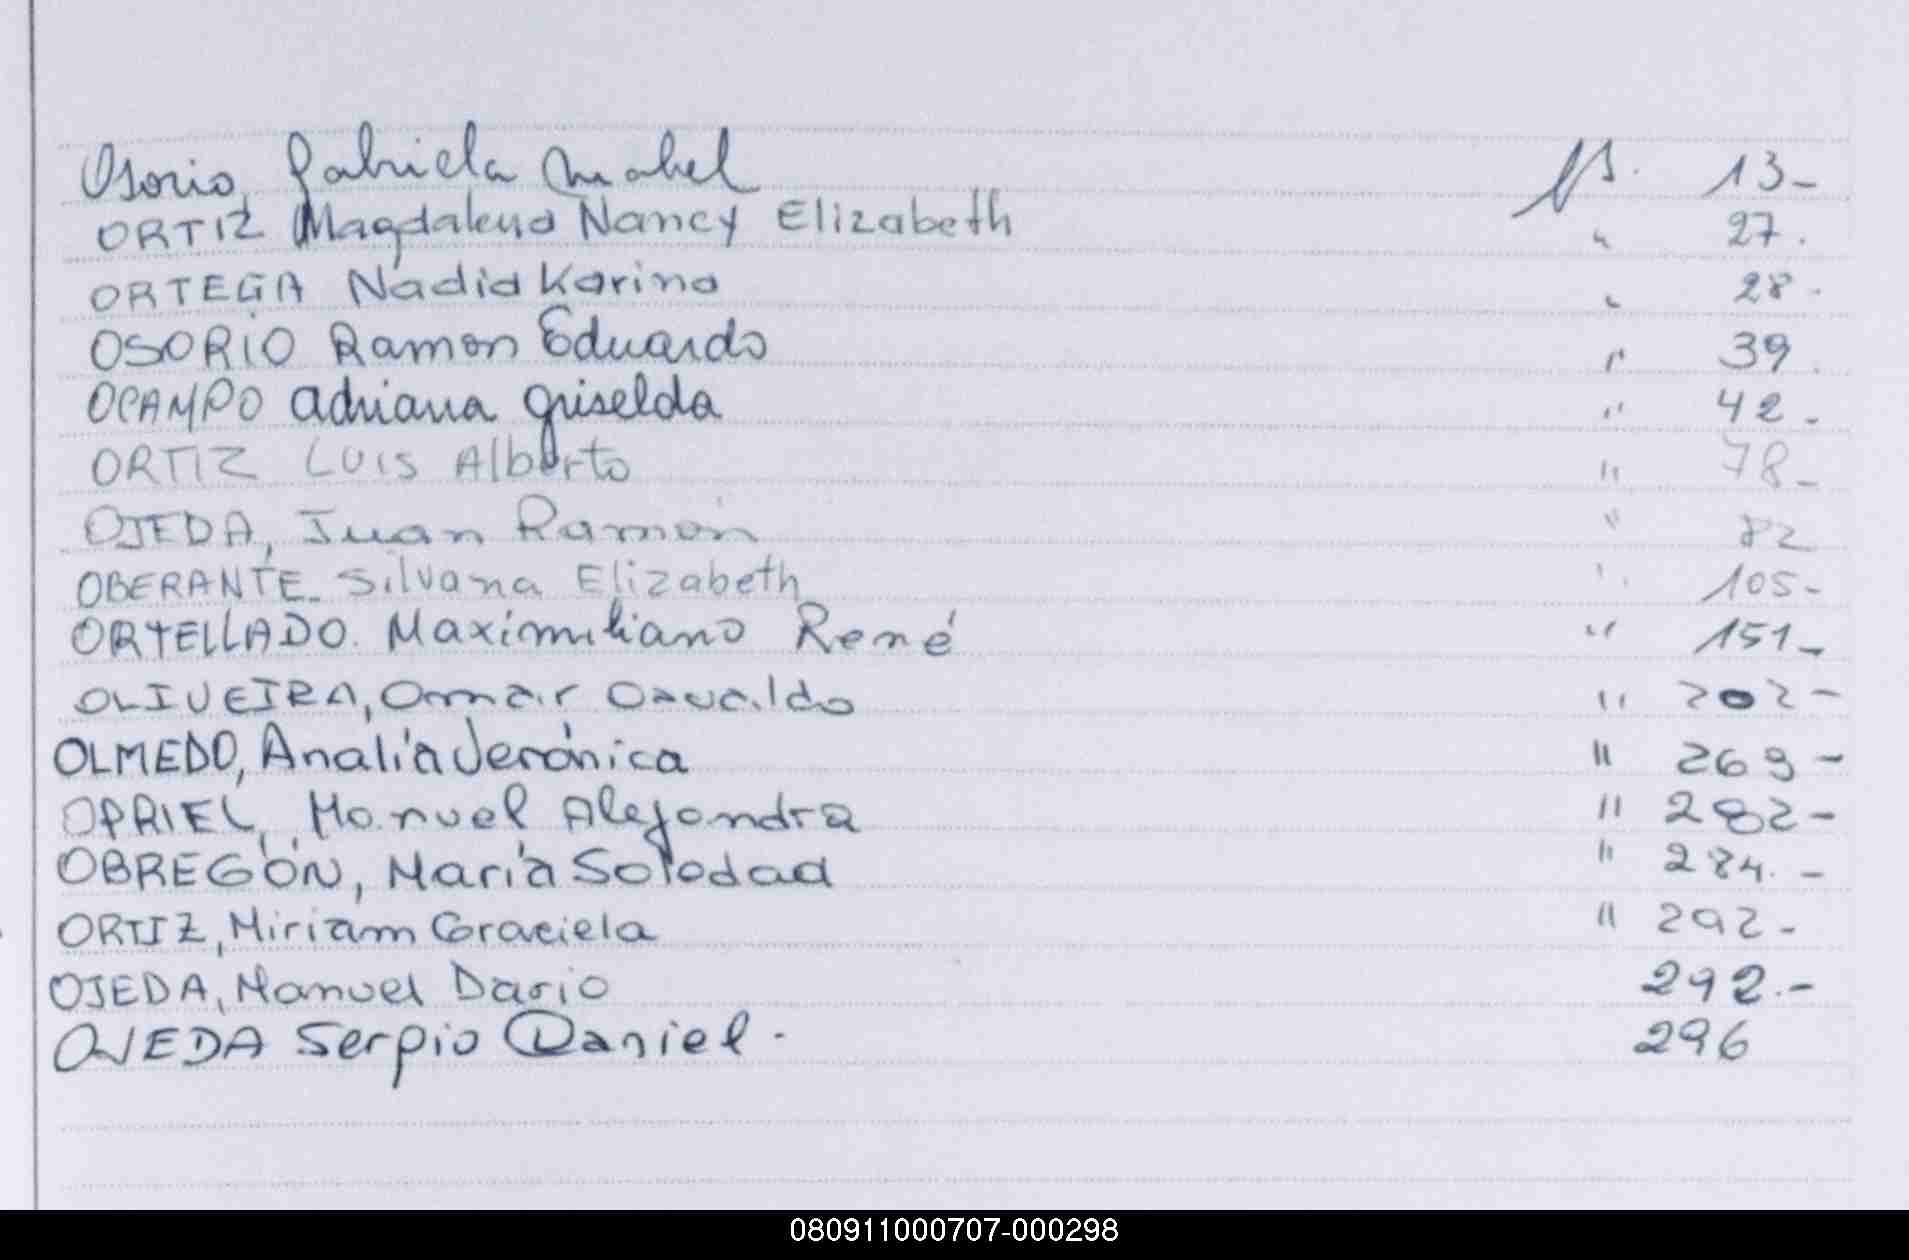 Osorio, Gabriela Mabel fs. 13-
ORTIZ Magdalena Nancy Elizabeth " 27.
ORTEGA Nadia Karina " 28.
OSORIO Ramon Eduardo " 39.
OCAMPO Adriana Griselda " 42-
ORTIZ LUIS Alberto " 78-
OJEDA, Juan Ramón " 82
OBERANTE- Silvana Elizabeth " 105-
ORTELLADO. Maximiliano René " 151-
OLIVEIRA, Omar Osvaldo " 202-
OLMEDO, Analía Verónica " 269-
OPRIEL, Manuel Alejandra " 282-
OBREGÓN, María Soledad " 284.-
ORTIZ, Miriam Graciela " 292-
OJEDA, Manuel Dario 292.-
OJEDA Sergio Daniel. 296
080911000707-000298